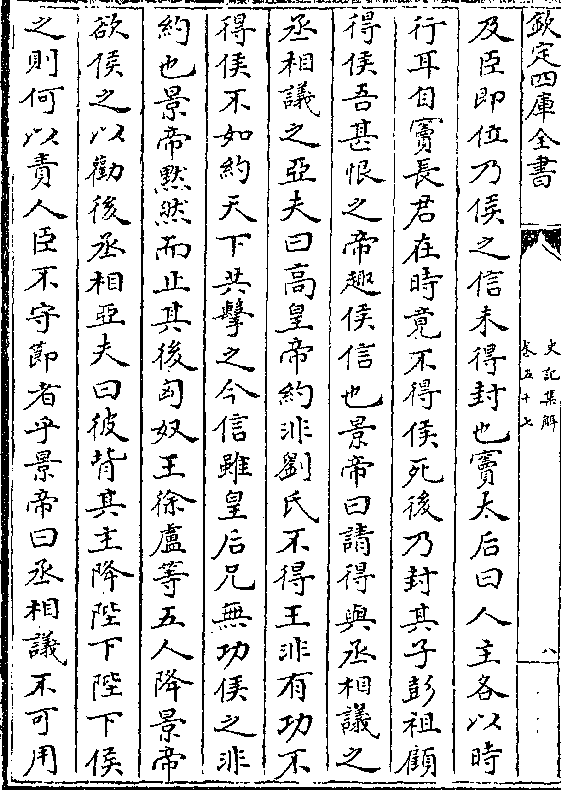 欽定四庫全書
史記集解
卷五十七
八
及臣即位乃侯之信未得封也竇太后曰人主各以時
行耳自竇長君在時竟不得侯死後乃封其子彭祖顧
得侯吾甚恨之帝趣侯信也景帝曰請得與丞相議之
丞相議之亞夫曰高皇帝約非劉氏不得王非有功不
得侯不如約天下共擊之今信雖皇后兄無功侯之非
約也景帝黙然而止其後匈奴王徐盧等五人降景帝
欲侯之以勸後丞相亞夫曰彼背其主降陛下陛下侯
之則何以責人臣不守節者乎景帝曰丞相議不可用